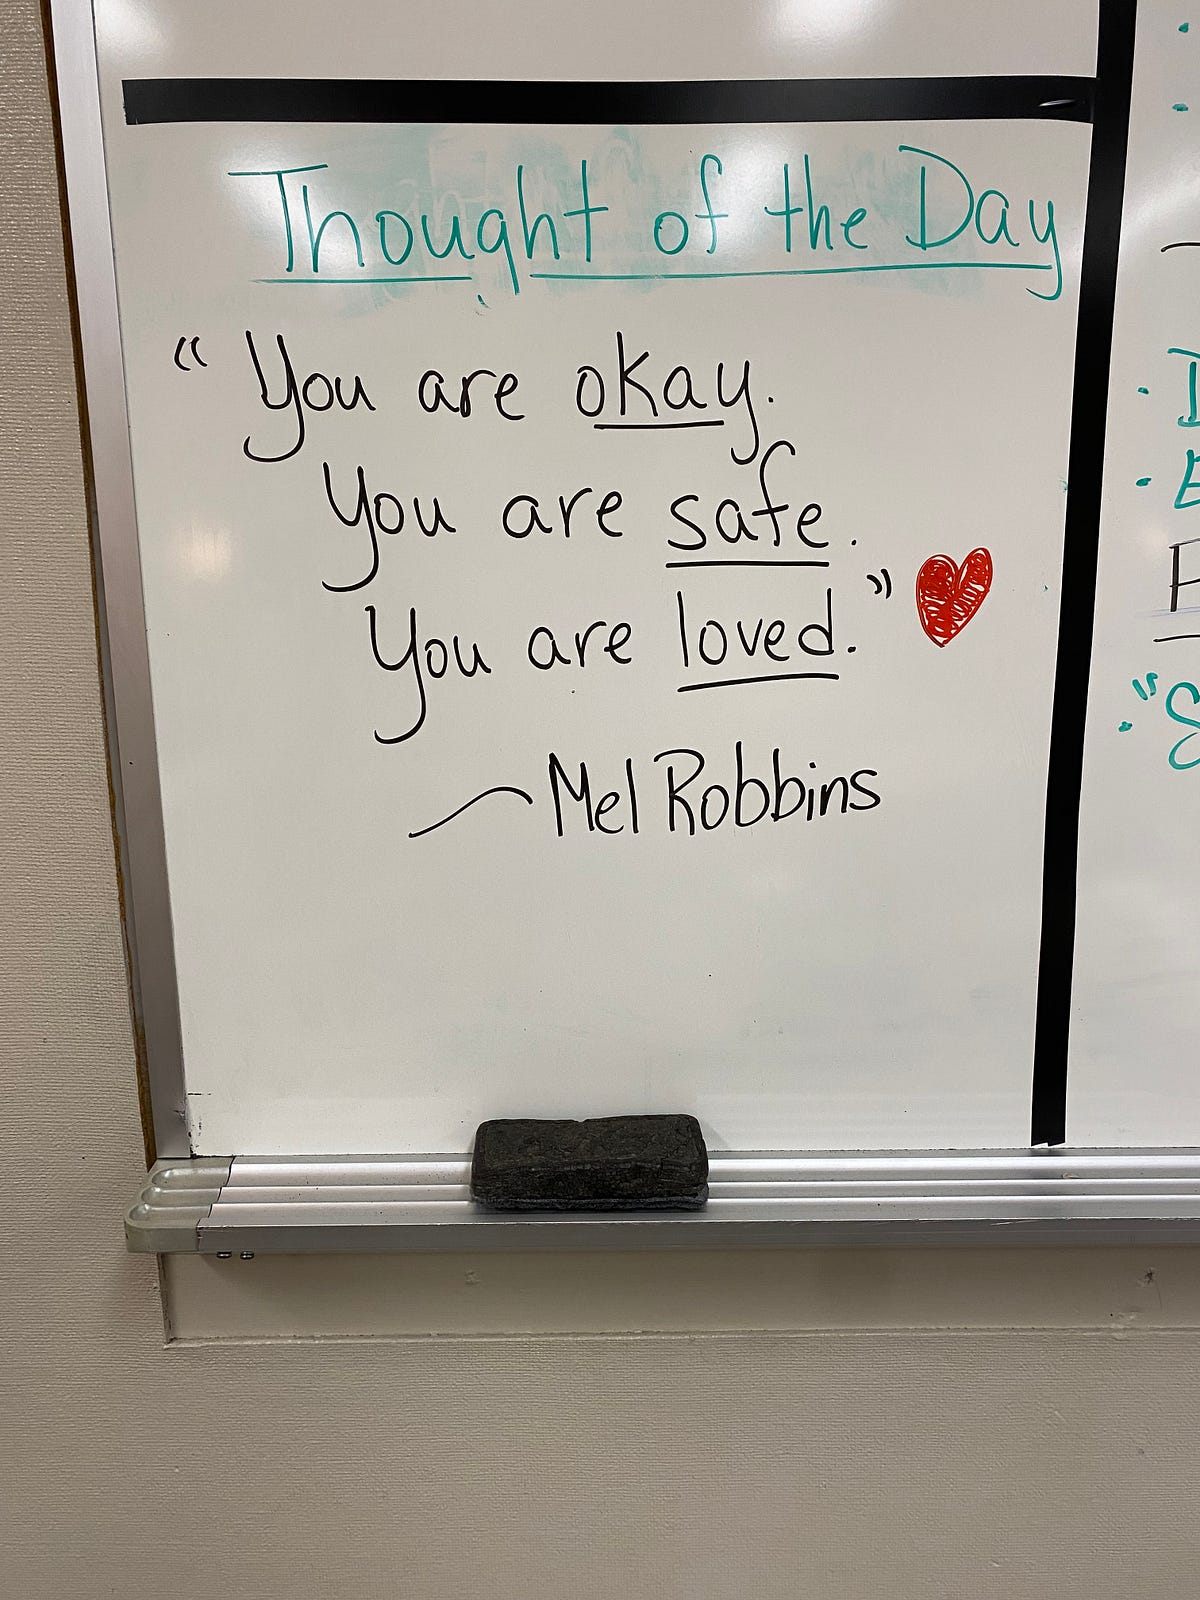 Thought of the Day
"You are okay.
You are safe.
You are loved."
~ Mel Robbins